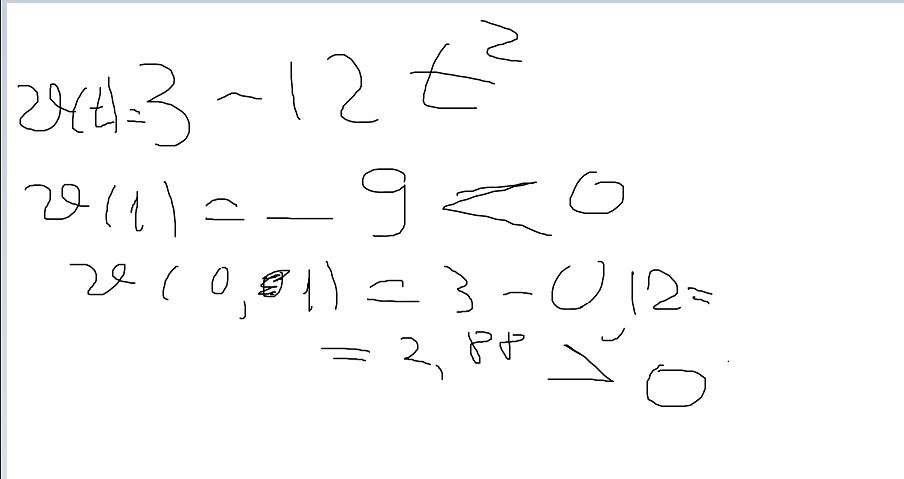 ϑ(t)=3-12t²
ϑ(1)=-9<0
ϑ(0,1)=3-0,12=
=2,88>0